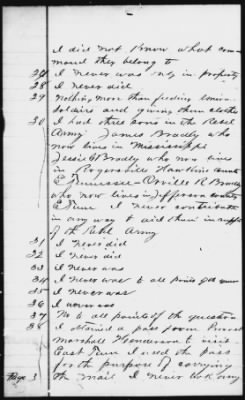 I did not know what com
mand they belong to
27 I never was only in property
28 I never did
29 Nothing more than feeding
soldiers and giving them clothes
30 I had three sons in the Rebel
Army James Bradly who
now lives in Mississippi
Jessie Bradly who now lives
in Rogersville Hawkins County
E Tennessee - Orville R Bradly
who now lives in Jefferson county
E Tenn I never contributed
in any way to aid them in supp
of the Rebel Army
31 I never did
32 I never did
33 I never was
34 I never was to all points
35 I never was
36 I never was
37 No to all points of the question
38 I obtained a pass from Provost
Marshall Henderson to visit
East Tenn I used the pass
for the purpose of carrying
Page 3 the mail I never took any